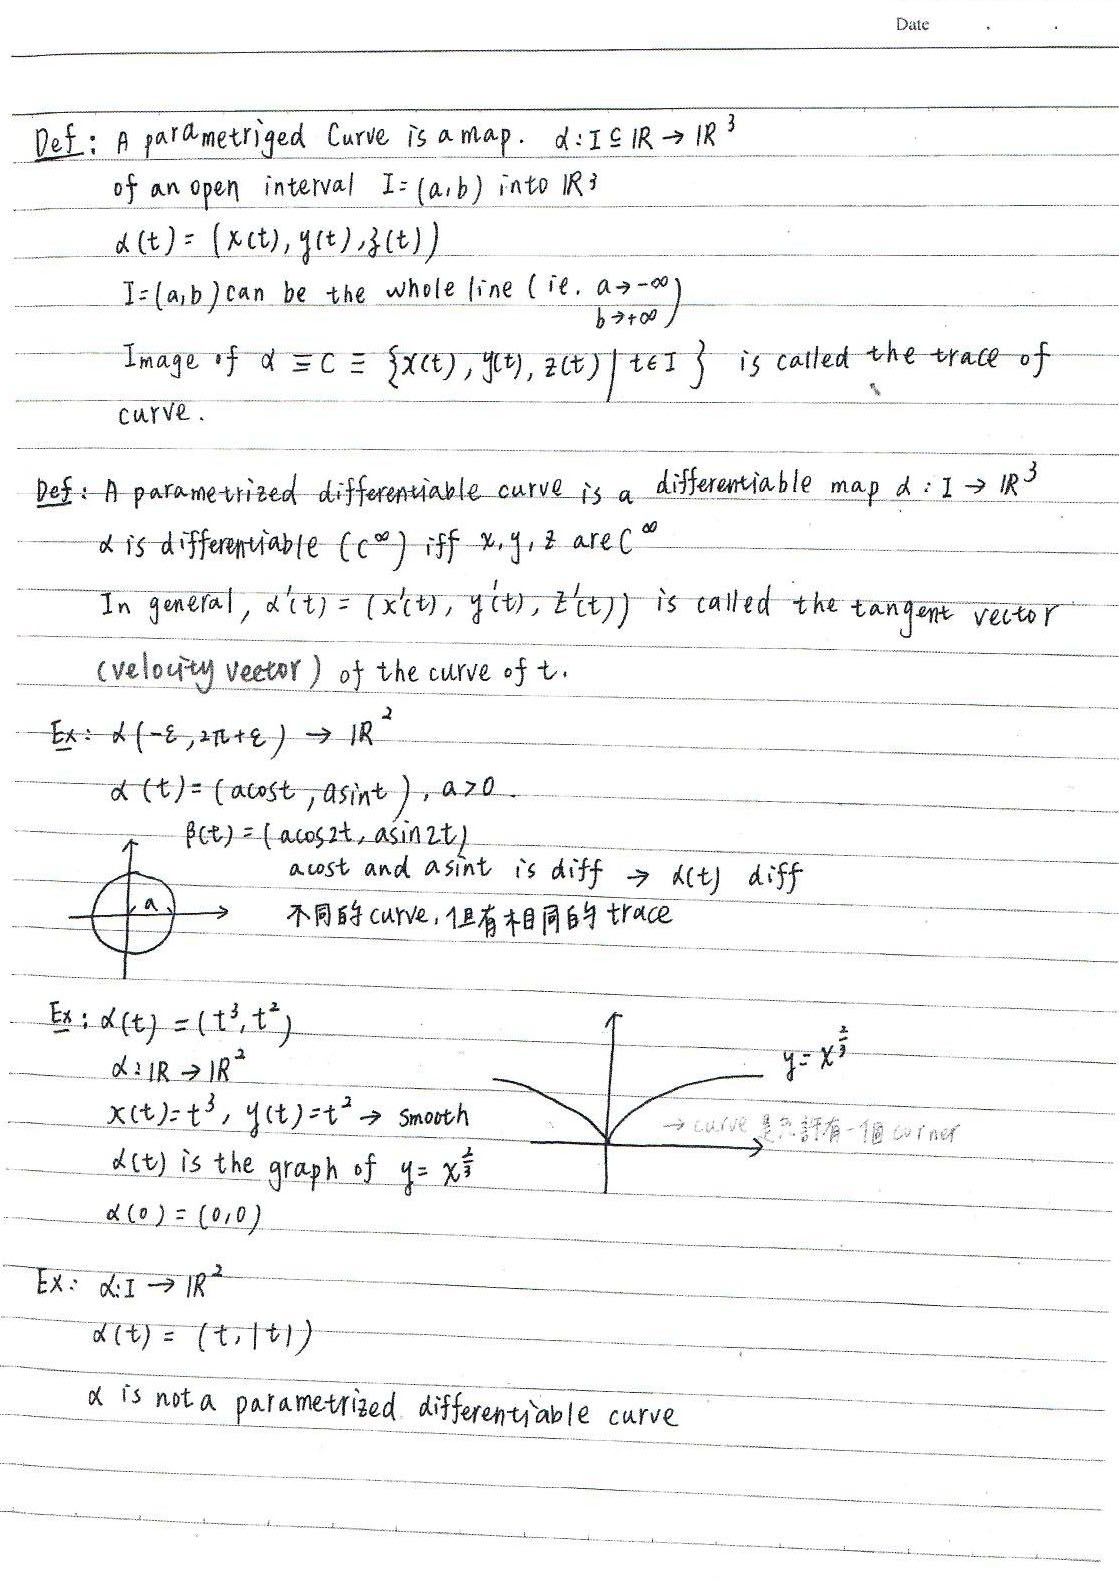 Date . .
Def : A parametriged Curve is a map. α : I ⊆ IR → IR³
of an open interval I = (a,b) into IR³
α(t) = (x(t), y(t), z(t))
I=(a,b) can be the whole line (ie. a→-∞
b→+∞)
Image of α ≡ C ≡ {x(t), y(t), z(t) | t∈I } is called the trace of
curve.
Def : A parametrized differentiable curve is a differentiable map α : I → IR³
α is differentiable (C^∞) iff x, y, z are C^∞
In general, α'(t) = (x'(t), y'(t), z'(t)) is called the tangent vector
(velocity vector) of the curve of t.
Ex : α(-ε, 2π+ε) → IR²
α(t) = (acost, asint), a>0.
β(t) = (acos2t, asin2t)
acost and asint is diff → α(t) diff
a
不同的 curve, 但有相同的 trace
Ex : α(t) = (t³, t²)
α : IR → IR²
y = x^{2/3}
x(t)=t³, y(t)=t² → smooth
→ curve 是允許有一個 corner
α(t) is the graph of y = x^{2/3}
α(0) = (0,0)
Ex : α: I → IR²
α(t) = (t, |t|)
α is not a parametrized differentiable curve